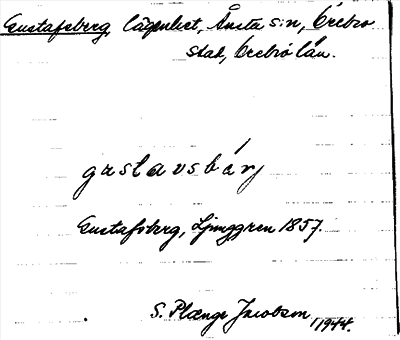 Gustafsberg, lägenhet, Ånsta s:n, Örebro
stad, Örebro län.
gustavsbärj
Gustafsberg, Ljunggren 1857.
S. Plænge Jacobson 1944.